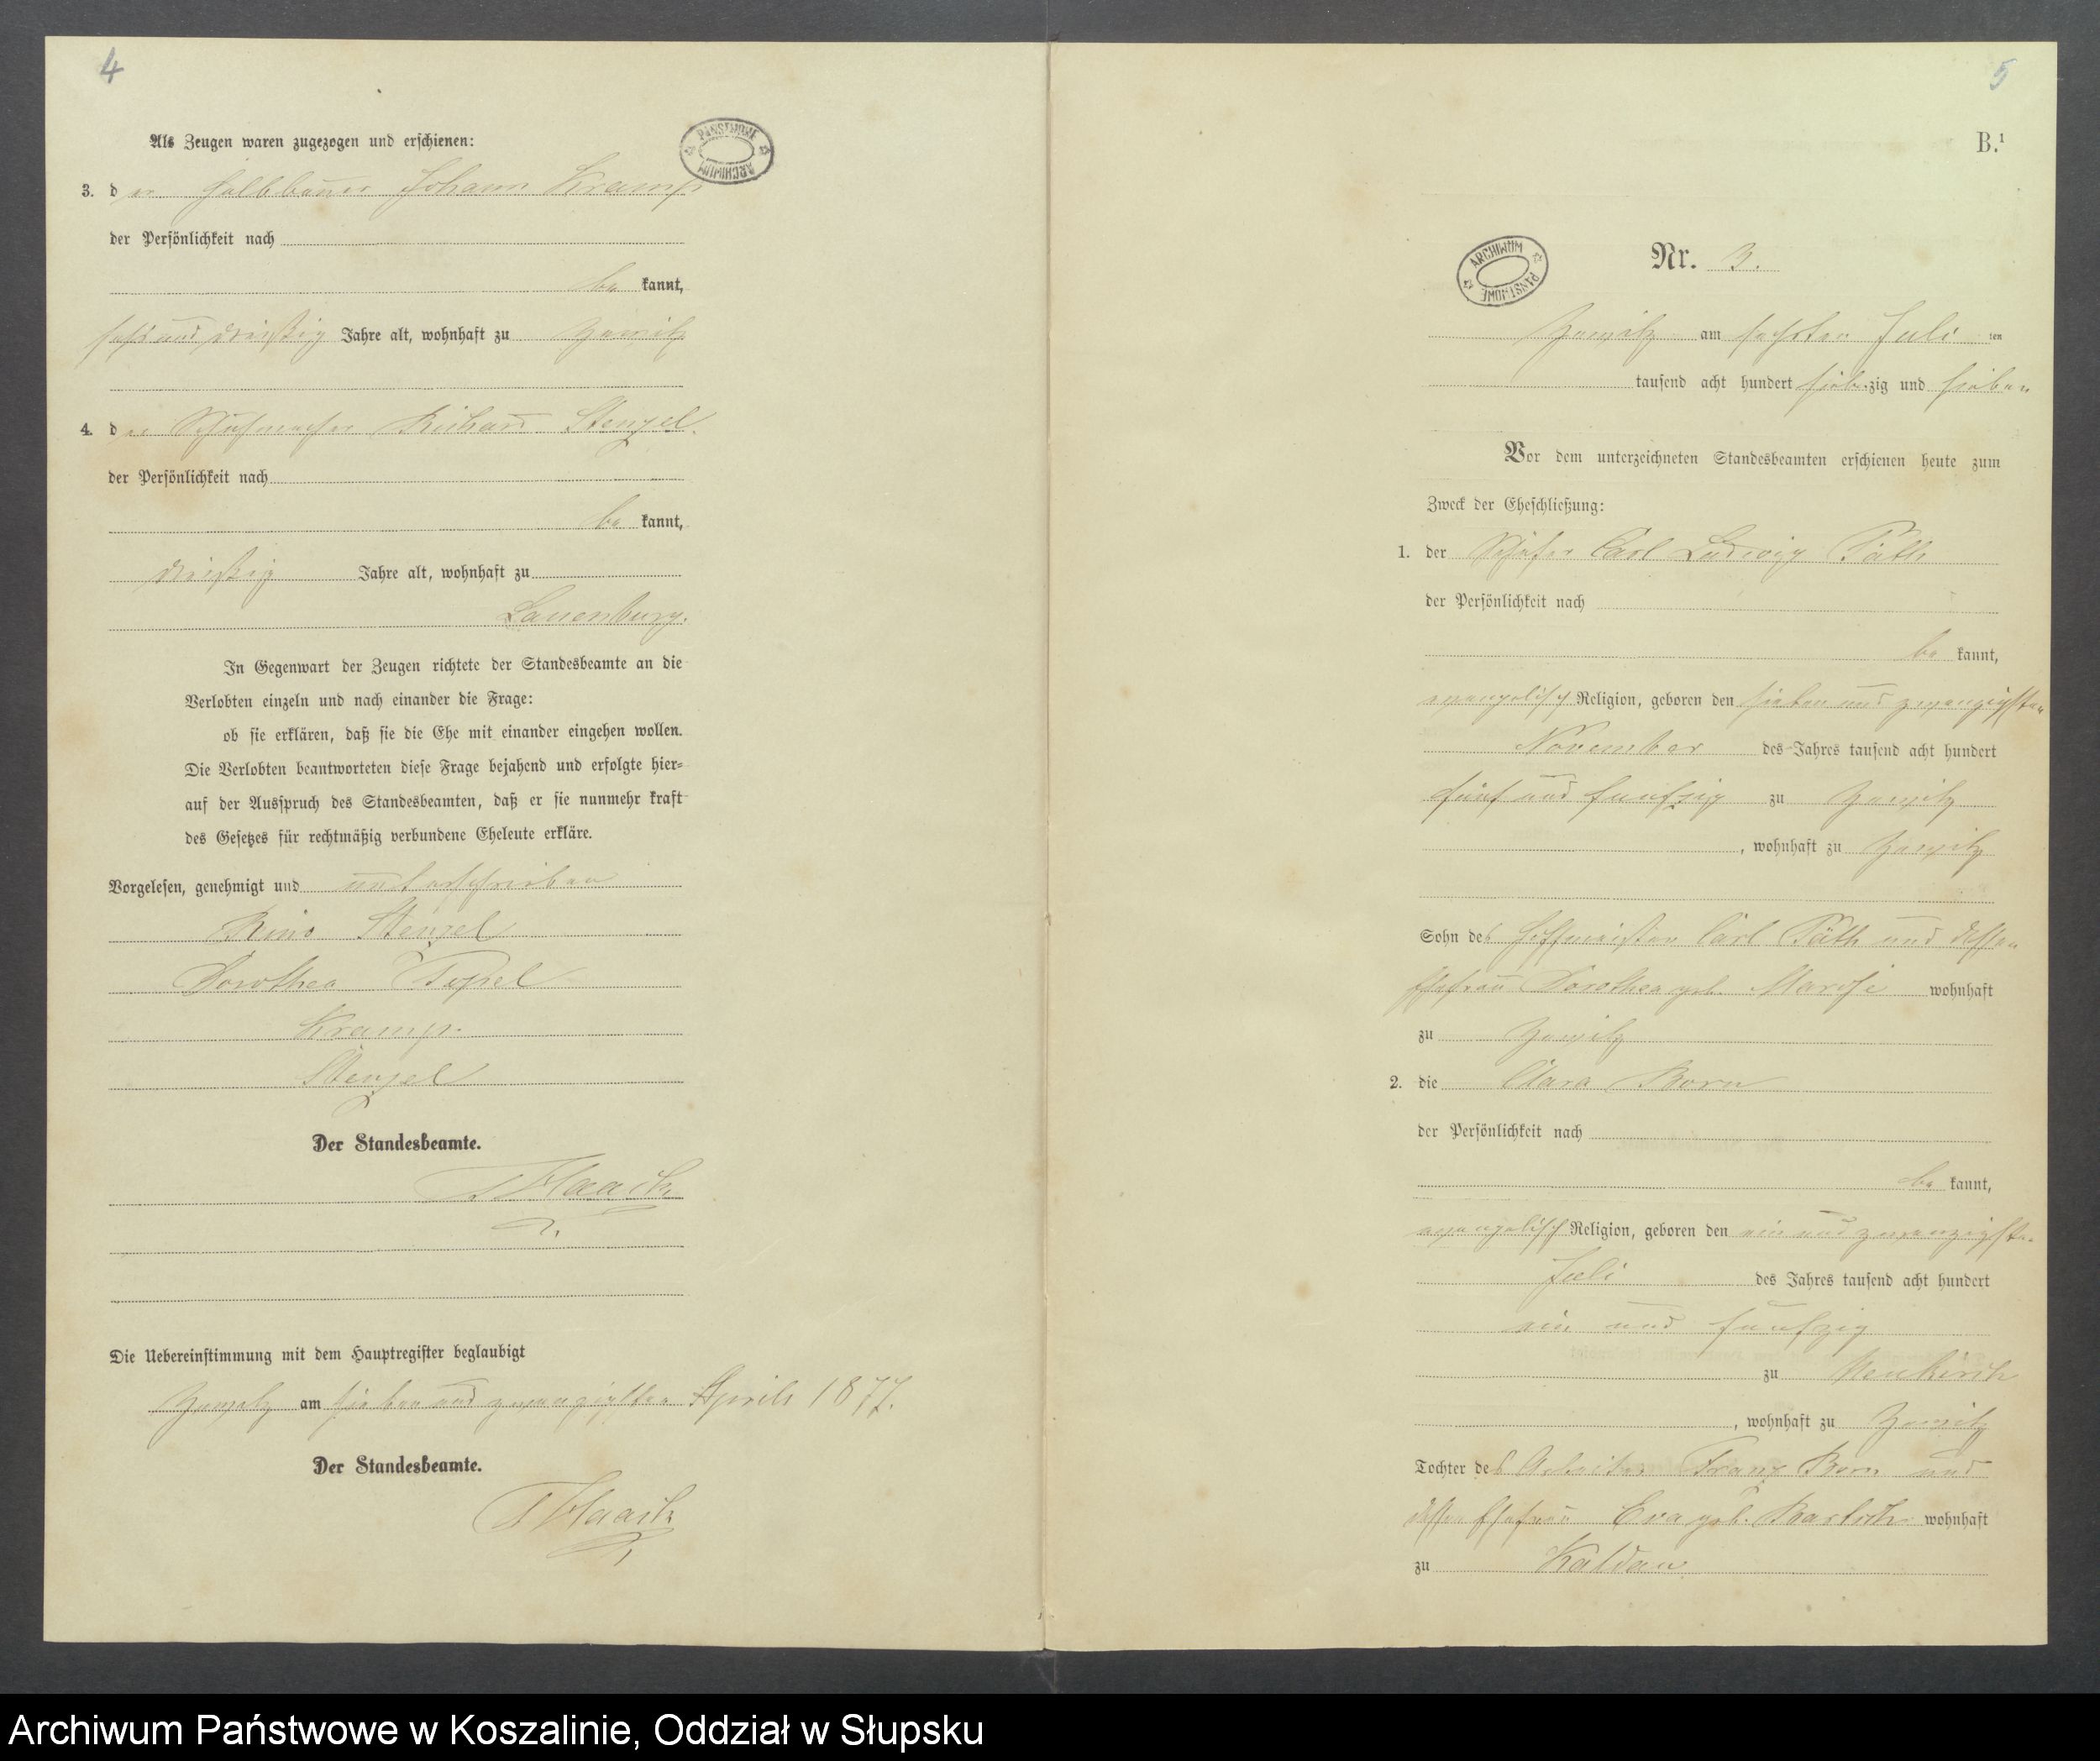 4
Als Zeugen waren zugezogen und erschienen:
3. der Halbbauer Johann Kramp
der Persönlichkeit nach
bekannt,
sechs und dreißig Jahre alt, wohnhaft zu Zewitz
4. der Schuhmacher Richard Stenzel.
der Persönlichkeit nach
bekannt,
dreißig Jahre alt, wohnhaft zu
Lauenburg.
In Gegenwart der Zeugen richtete der Standesbeamte an die
Verlobten einzeln und nach einander die Frage:
ob sie erklären, daß sie die Ehe mit einander eingehen wollen.
Die Verlobten beantworteten diese Frage bejahend und erfolgte hier-
auf der Ausspruch des Standesbeamten, daß er sie nunmehr kraft
des Gesetzes für rechtmäßig verbundene Eheleute erkläre.
Vorgelesen, genehmigt und unterschrieben
Stenzel
Dorothea
Kramp.
Stenzel
Der Standesbeamte.
Haack
Die Uebereinstimmung mit dem Hauptregister beglaubigt
Zewitz am sieben und zwanzigsten Aprils 1877.
Der Standesbeamte.
Haack
ARCHIWUM PAŃSTWOWE
5
B.¹
ARCHIWUM PAŃSTWOWE
Nr. 3.
Zewitz am sechsten Juli ten
tausend acht hundert siebenzig und sieben
Vor dem unterzeichneten Standesbeamten erschienen heute zum
Zweck der Eheschließung:
1. der Schäfer Carl Ludwig Päth
der Persönlichkeit nach
bekannt,
evangelisch Religion, geboren den sieben und zwanzigsten
November des Jahres tausend acht hundert
fünf und funfzig zu Zewitz
, wohnhaft zu Zewitz
Sohn des Hofmeister Carl Päth und dessen
Ehefrau Dorothea geb. wohnhaft
zu Zewitz
2. die Clara Born
der Persönlichkeit nach
bekannt,
evangelisch Religion, geboren den ein und zwanzigsten
Juli des Jahres tausend acht hundert
ein und funfzig
zu Neukirch
, wohnhaft zu Zewitz
Tochter des Arbeiter Franz Born und
dessen Ehefrau Eva geb. wohnhaft
zu Kaldau
Archiwum Państwowe w Koszalinie, Oddział w Słupsku